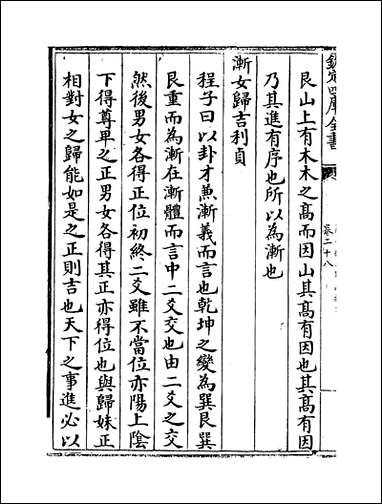 欽定四庫全書
卷二十八
艮山上有木木之高而因山其高有因也其高有因
乃其進有序也所以為漸也
漸女歸吉利貞
程子曰以卦才兼漸義而言也乾坤之變為巽艮巽
艮重而為漸在漸體而言中二爻交也由二爻之交
然後男女各得正位初終二爻雖不當位亦陽上陰
下得尊卑之正男女各得其正亦得位也與歸妹正
相對女之歸能如是之正則吉也天下之事進必以